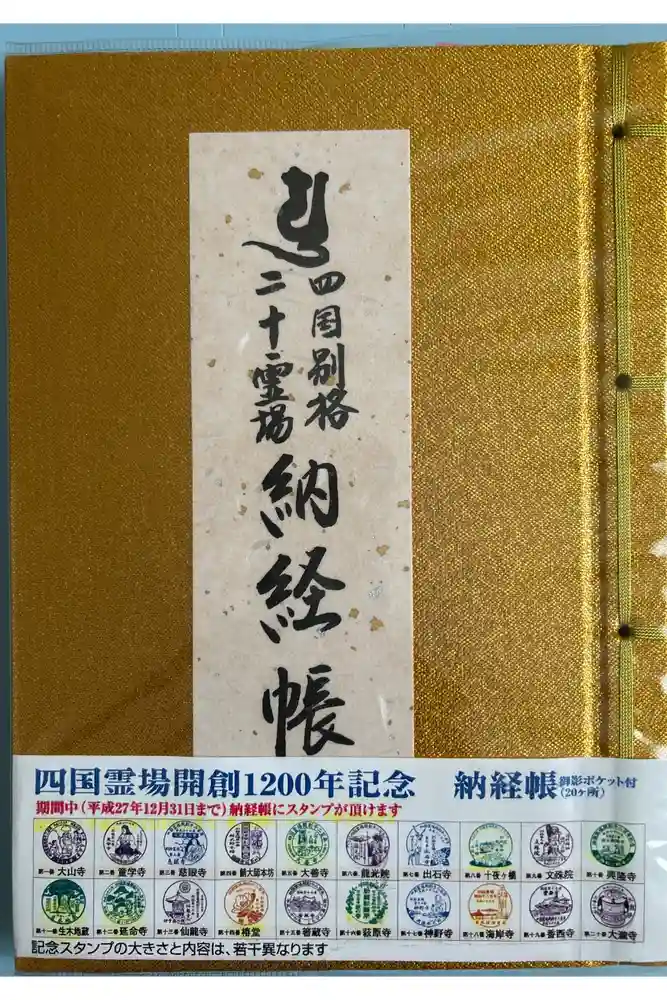 四国別格
二十霊場
納経帳
四国霊場開創1200年記念 納経帳 御影ポケット付
(20ヶ所)
期間中(平成27年12月31日まで)納経帳にスタンプが頂けます
第一番 大山寺 第二番 童学寺 第三番 慈眼寺 第四番 鯖大師本坊 第五番 大善寺 第六番 龍光院 第七番 出石寺 第八番 十夜ヶ橋 第九番 文殊院 第十番 興隆寺
第十一番 生木地蔵 第十二番 延命寺 第十三番 仙龍寺 第十四番 椿堂 第十五番 箸蔵寺 第十六番 萩原寺 第十七番 神野寺 第十八番 海岸寺 第十九番 香西寺 第二十番 大瀧寺
記念スタンプの大きさと内容は、若干異なります